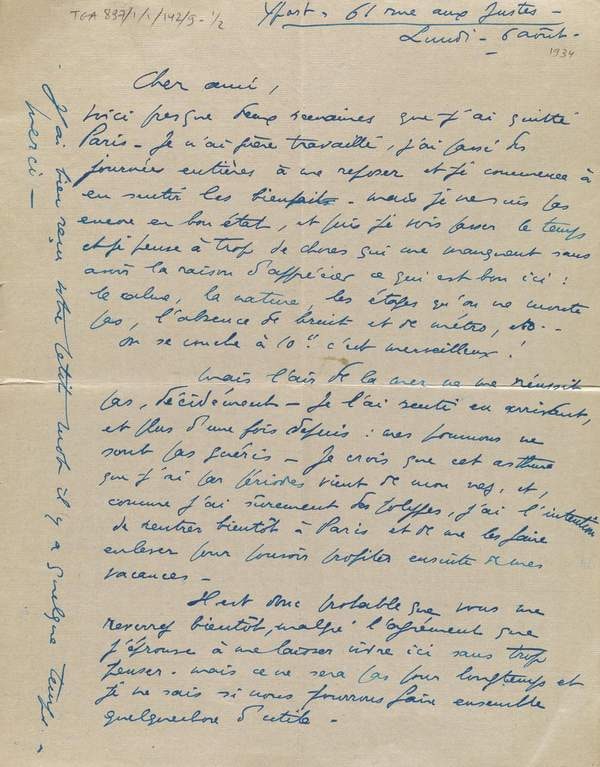 TGA 897/1/1/142/5-1/2
Yport, 61 rue aux Justes -
Lundi - 6 août -
1934
Cher ami,
voici presque deux semaines que j'ai quitté
Paris - Je n'ai guère travaillé, j'ai passé des
journées entières à me reposer et je commence à
en sentir les bienfaits - mais je ne suis pas
encore en bon état, et puis je vois passer le temps
et je pense à trop de choses qui me manquent sans
avoir la raison d'apprécier ce qui est bon ici :
le calme, la nature, les étages qu'on ne monte
pas, l'absence de bruit et de métro, etc..
on se couche à 10h c'est merveilleux !
mais l'air de la mer ne me réussit
pas, décidément - Je l'ai senti en arrivant,
et plus d'une fois depuis : mes poumons ne
sont pas guéris - Je crois que cet asthme
que j'ai par périodes vient de mon nez, et,
comme j'ai sûrement des polypes, j'ai l'intention
de rentrer bientôt à Paris et de me les faire
enlever pour pouvoir profiter ensuite de mes
vacances -
Il est donc probable que vous me
reverrez bientôt, malgré l'agrément que
j'éprouve à me laisser vivre ici sans trop
penser - mais ce ne sera pas pour longtemps et
je ne sais si nous pourrons faire ensemble
quelque chose d'utile -
J'ai bien reçu votre petit mot il y a quelque temps -
merci -